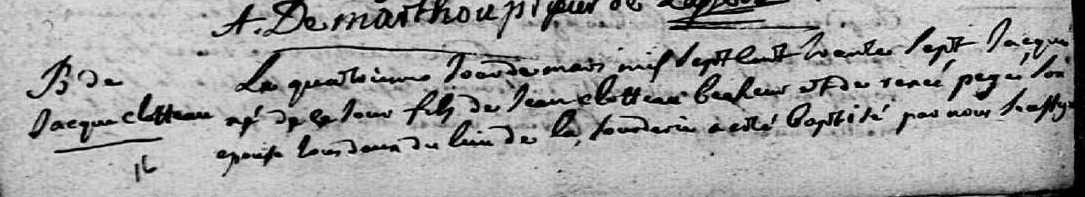 A. De marthou prieur de
B de
Jacque clotteau
16
Le quatrieme Jour de mars mil sept cent trante sept Jacque
né de ce Jour fils de Jean clotteau becheur et de renée
epouse tous deux du lieu de la a esté baptisé par nous